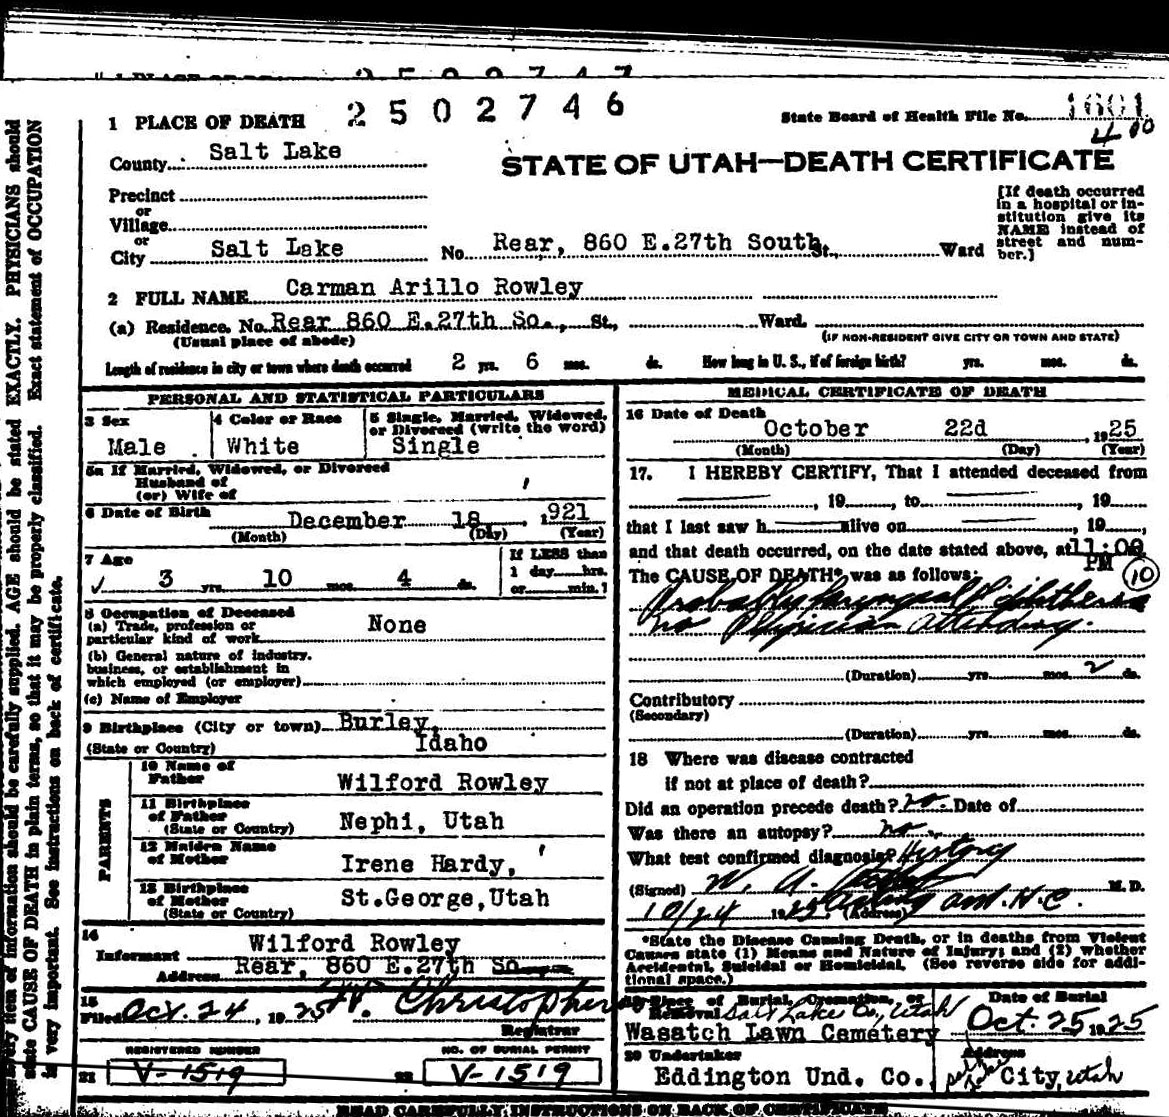 2502746
1 PLACE OF DEATH
State Board of Health File No. 1601
400
County Salt Lake
STATE OF UTAH—DEATH CERTIFICATE
Precinct
or
Village
or
City Salt Lake No. Rear, 860 E.27th South St., Ward
[If death occurred in a hospital or in-
stitution give its
NAME instead of
street and num-
ber.]
2 FULL NAME Carman Arillo Rowley
(a) Residence. No. Rear 860 E.27th So., St., Ward.
(Usual place of abode)
(IF NON-RESIDENT GIVE CITY OR TOWN AND STATE)
Length of residence in city or town where death occurred 2 yrs. 6 mos. ds. How long in U. S., if of foreign birth? yrs. mos. ds.
PERSONAL AND STATISTICAL PARTICULARS
3 Sex
Male
4 Color or Race
White
5 Single, Married, Widowed,
or Divorced (write the word)
Single
5a If Married, Widowed, or Divorced
Husband of
(or) Wife of
6 Date of Birth December 18, 1921
(Month) (Day) (Year)
7 Age
3 yrs. 10 mos. 4 ds.
If LESS than
1 day hrs.
or min.]
8 Occupation of Deceased
(a) Trade, profession or
particular kind of work None
(b) General nature of industry.
business, or establishment in
which employed (or employer)
(c) Name of Employer
9 Birthplace (City or town) Burley,
(State or Country) Idaho
PARENTS
10 Name of
Father Wilford Rowley
11 Birthplace
of Father
(State or Country) Nephi, Utah
12 Maiden Name
of Mother Irene Hardy,
13 Birthplace
of Mother
(State or Country) St.George,Utah
14
Informant Wilford Rowley
Address Rear, 860 E.27th So
15
Filed Oct. 24, 1925 W. Christopherson
Registrar
REGISTERED NUMBER
21 V-1519
NO. OF BURIAL PERMIT
22 V-1519
MEDICAL CERTIFICATE OF DEATH
16 Date of Death
October 22d, 1925
(Month) (Day) (Year)
17. I HEREBY CERTIFY, That I attended deceased from
, 19 , to , 19
that I last saw h alive on , 19 ,
and that death occurred, on the date stated above, at 11:00
PM
The CAUSE OF DEATH* was as follows:
10
Probably Laryngeal Diphtheria
no Physician attending.
(Duration) yrs. mos. 2 ds.
Contributory
(Secondary)
(Duration) yrs. mos. ds.
18 Where was disease contracted
if not at place of death?
Did an operation precede death? no. Date of
Was there an autopsy? no.
What test confirmed diagnosis? History
(Signed) W. A. M.D.
10/24 1925 (Address) and. H.C.
*State the Disease Causing Death, or in deaths from Violent
Causes state (1) Means and Nature of Injury; and (2) whether
Accidental, Suicidal or Homicidal. (See reverse side for addi-
tional space.)
19 Place of Burial, Cremation, or
Removal Salt Lake Co., Utah
Wasatch Lawn Cemetery
Date of Burial
Oct. 25 1925
20 Undertaker
Eddington Und. Co.
Address
Salt Lake City, Utah
READ CAREFULLY INSTRUCTIONS ON BACK OF CERTIFICATE
Every item of information should be carefully supplied. AGE should be stated EXACTLY. PHYSICIANS should
state CAUSE OF DEATH in plain terms, so that it may be properly classified. Exact statement of OCCUPATION
is very important. See instructions on back of certificate.